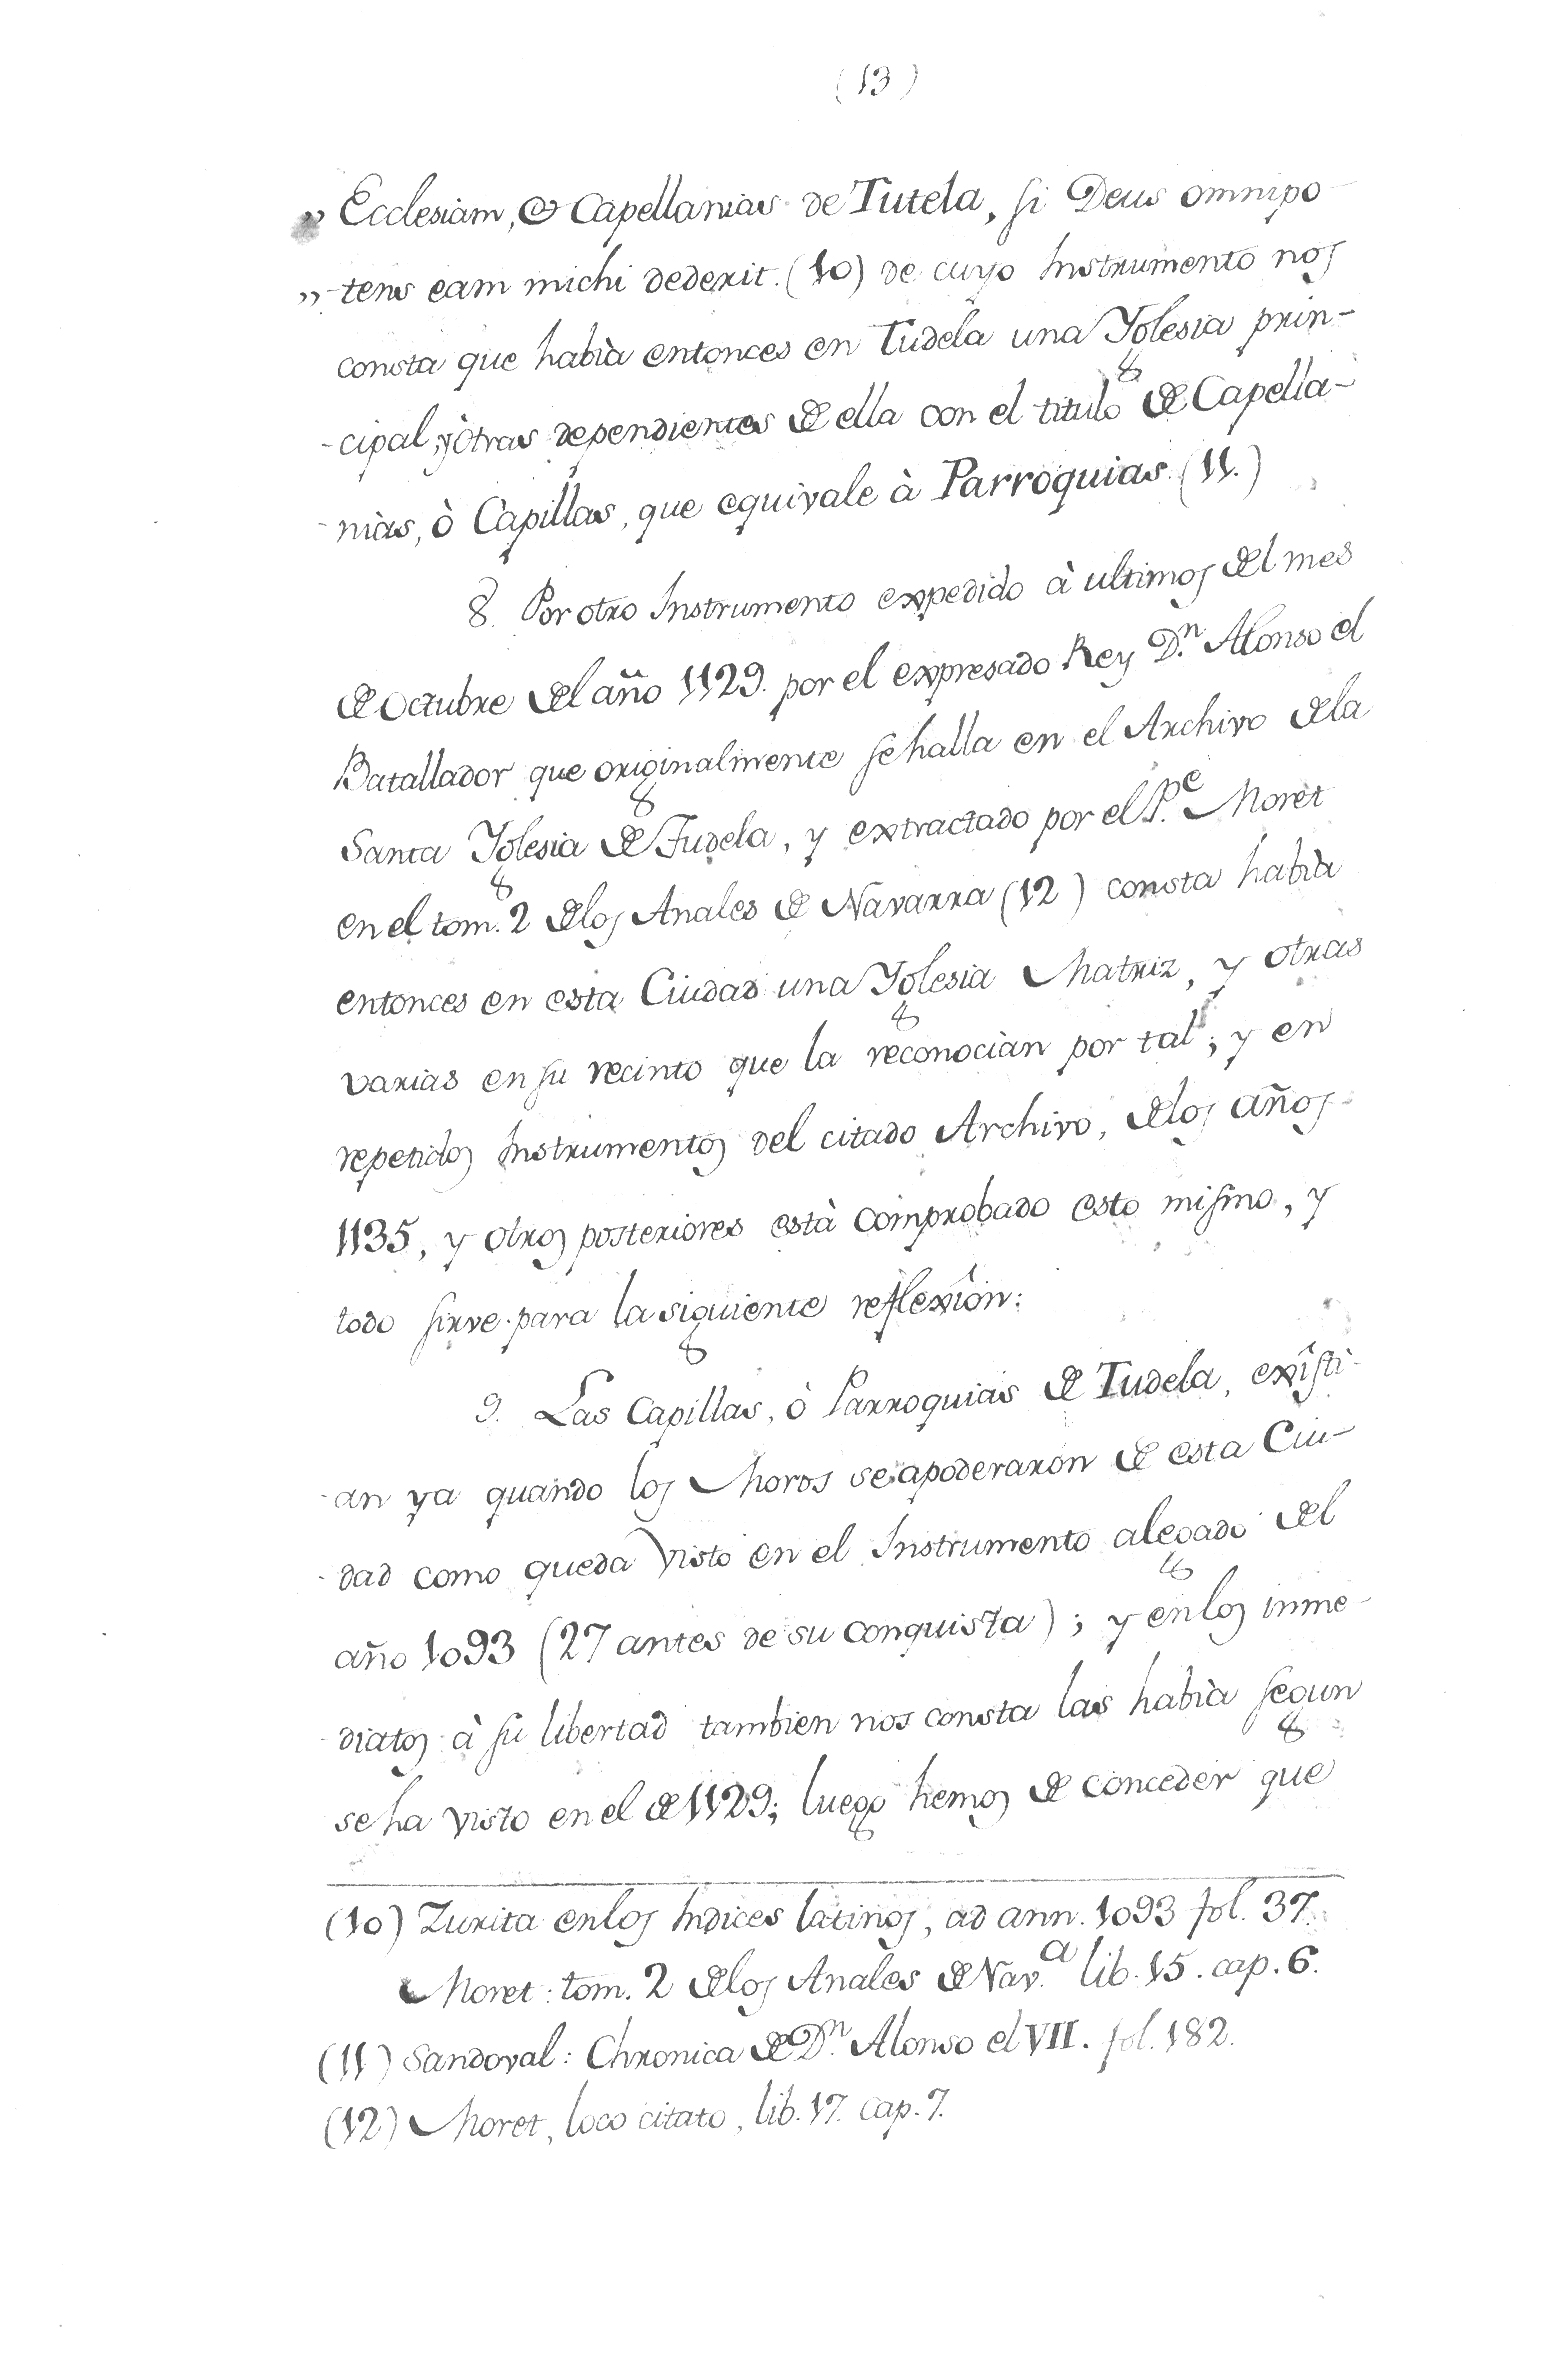 (13)
„ Ecclesiam, & Capellanias de Tutela, si Deus omnipo-
„ -tens eam michi dederit. (10) de cuyo Instrumento nos
consta que habìa entonces en Tudela una Yglesia prin-
-cipal, y òtras dependientes de ella con el titulo de Capella-
-nìas, ò Capillas, que equivale à Parroquias. (11.)
8. Por otro Instrumento expedido à ultimos del mes
de Octubre del año 1129. por el expresado Rey D.n Alonso el
Batallador que originalmente se halla en el Archivo de la
Santa Yglesia de Tudela, y extractado por el P.e Moret
en el tom. 2 de los Anales de Navarra (12) consta habìa
entonces en esta Ciudad una Yglesia Matriz, y otras
varias en su recinto que la reconocìan por tal; y en
repetidos Instrumentos del citado Archivo, de los años
1135, y otros posteriores està comprobado esto mismo, y
todo sirve para la siguiente reflexîon:
9. Las Capillas, ò Parroquias de Tudela, exîsti-
-an ya quando los Moros se apoderaron de esta Ciu-
-dad como queda visto en el Instrumento alegado del
año 1093 (27 antes de su conquista); y en los inme-
-diatos à su libertad tambien nos consta las habìa segun
se ha visto en el de 1129; luego hemos de conceder que
(10) Zurita en los Indices latinos, ad ann. 1093 fol. 37.
Moret: tom. 2 de los Anales de Nav.a lib. 15. cap. 6.
(11) Sandoval: Chronica de D.n Alonso el VII. fol. 182.
(12) Moret, loco citato, lib. 17. cap. 7.